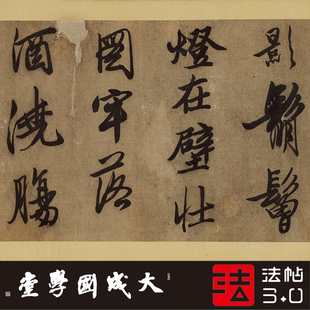 影鬅鬙
燈在壁壯
圖牢落
酒澆腸
大成國學堂
法
法帖
3.0